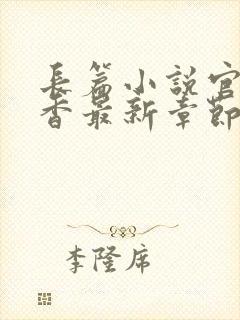 長篇小說官
香最新章節
李隆席